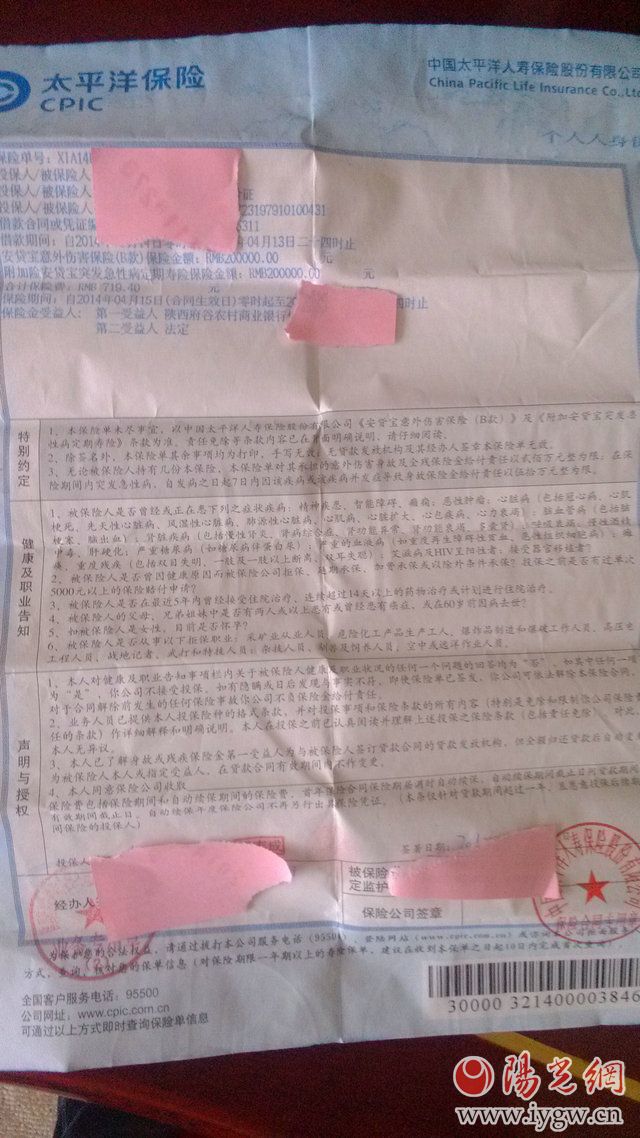 太平洋保险
CPIC
中国太平洋人寿保险股份有限公司
China Pacific Life Insurance Co.,Ltd
个人人身
保险单号：XIA140
投保人/被保险人
投保人/被保险人 证
投保人/被保险人
借款合同或凭证编 6311
借款期间：自2014年 零时 04月13日二十四时止
安贷宝意外伤害保险(B款)保险金额：RMB200000.00 元
附加险安贷宝突发急性病定期寿险保险金额：RMB200000.00 元
合计保险费：RMB 719.40 元
保险期间：自2014年04月15日(合同生效日)零时起至20 四时止
保险金受益人： 第一受益人 陕西府谷农村商业银行
第二受益人 法定
特别约定
1、本保险单未尽事宜，以中国太平洋人寿保险股份有限公司《安贷宝意外伤害保险（B款）》及《附加安贷宝突发急
性病定期寿险》条款为准。责任免除等条款内容已在背面明确说明，请仔细阅读。
2、除签名外，本保险单其余事项均为打印，手写无效；无贷款发放机构及其经办人签章本保险单无效。
3、无论被保险人持有几份本保险，本保险单对其承担的意外伤害身故及全残保险金给付责任以贰佰万元整为限。在保
险期间内突发急性病，自发病之日起7日内因该疾病或该疾病并发症导致身故保险金给付责任以伍拾万元整为限。
健康及职业告知
1、被保险人是否曾经或正在患下列之症状疾病：精神疾患、智能障碍、癫痫；恶性肿瘤；心脏病（包括冠心病、心肌
梗死、先天性心脏病、风湿性心脏病、肺源性心脏病、心肌病、心脏扩大、心包疾病、心力衰竭）；脑血管病（包括脑
梗塞、脑出血）；肾脏疾病（包括慢性肾炎、肾病综合征、肾功能异常、肾功能衰竭、多囊肾）
中毒、肝硬化；严重糖尿病（如糖尿病伴蛋白尿）；严重的血液病（如重度再生障碍性贫血、恶性组织细胞病）；瘫
痪、重度残疾（包括双目失明、一肢及一肢以上断离、双耳失聪）；艾滋病及HIV呈阳性者；接受器官移植者？
2、被保险人是否曾因健康原因而被保险公司拒保、延期承保、加费承保或以除外条件承保？投保之前是否有过单次
5000元以上的保险赔付申请？
3、被保险人是否在最近5年内曾经接受住院治疗、连续超过14天以上的药物治疗或计划进行住院治疗。
4、被保险人的父母、兄弟姐妹中是否有两人或以上患有或曾经患有癌症，或在60岁前因病去世？
5、如被保险人是女性，目前是否怀孕？
6、被保险人是否从事以下拒保职业：采矿业从业人员、危险化工产品生产工人、爆炸品制造和爆破工作人员、高压电
工程人员、战地记者、武打和特技人员、杂技人员、驯兽及饲养人员、空中或远洋作业人员。
声明与授权
1、本人对健康及职业告知事项栏内关于被保险人健康及职业状况的任何一个问题的回答均为“否”，如其中任何一项
为“是”，你公司不接受投保。如有隐瞒或日后发现与事实不符，即使保险单已签发，你公司可依法解除本保险合同，
对于合同解除前发生的任何保险事故你公司不负保险金给付责任。
2、业务人员已提供本人投保险种的格式条款，并对投保事项和保险条款的所有内容（特别是免除和限制你公司保险
任的条款）作详细解释和明确说明。本人在投保之前已认真阅读并理解上述投保之保险条款（包括责任免除），对此
本人无异议。
3、本人已了解身故或残疾保险金第一受益人为与被保险人签订贷款合同的贷款发放机构，但全额归还贷款后自动变
为被保险人本人或指定受益人，在贷款合同有效期间内不作变更。
4、本人同意保险公司收取
保险费也包括保险期间和自动续保期间的保险费。首年保险合同保险期届满时自动续保，自动续保期间截止日同贷款期间
有效期间截止日。自动续保年度保险公司不再另行出具保险凭证。（本条仅针对贷款期间超过一年，且愿意投保后续
间保险的投保人）
投保人
签署日期：201
经办人
被保险
定监护
保险公司签章
为保护您的合法权益，请通过拨打本公司服务电话（95500）、登陆网站（www.cpic.com.cn）
方式，查询、核对您的保单信息（对保险期限一年期以上的寿险保单，建议在收到本保单之日起10日内完成首次查询）
全国客户服务电话：95500
公司网址：www.cpic.com.cn
可通过以上方式即时查询保险单信息
30000 321400003846
陽光網
www.iygw.cn